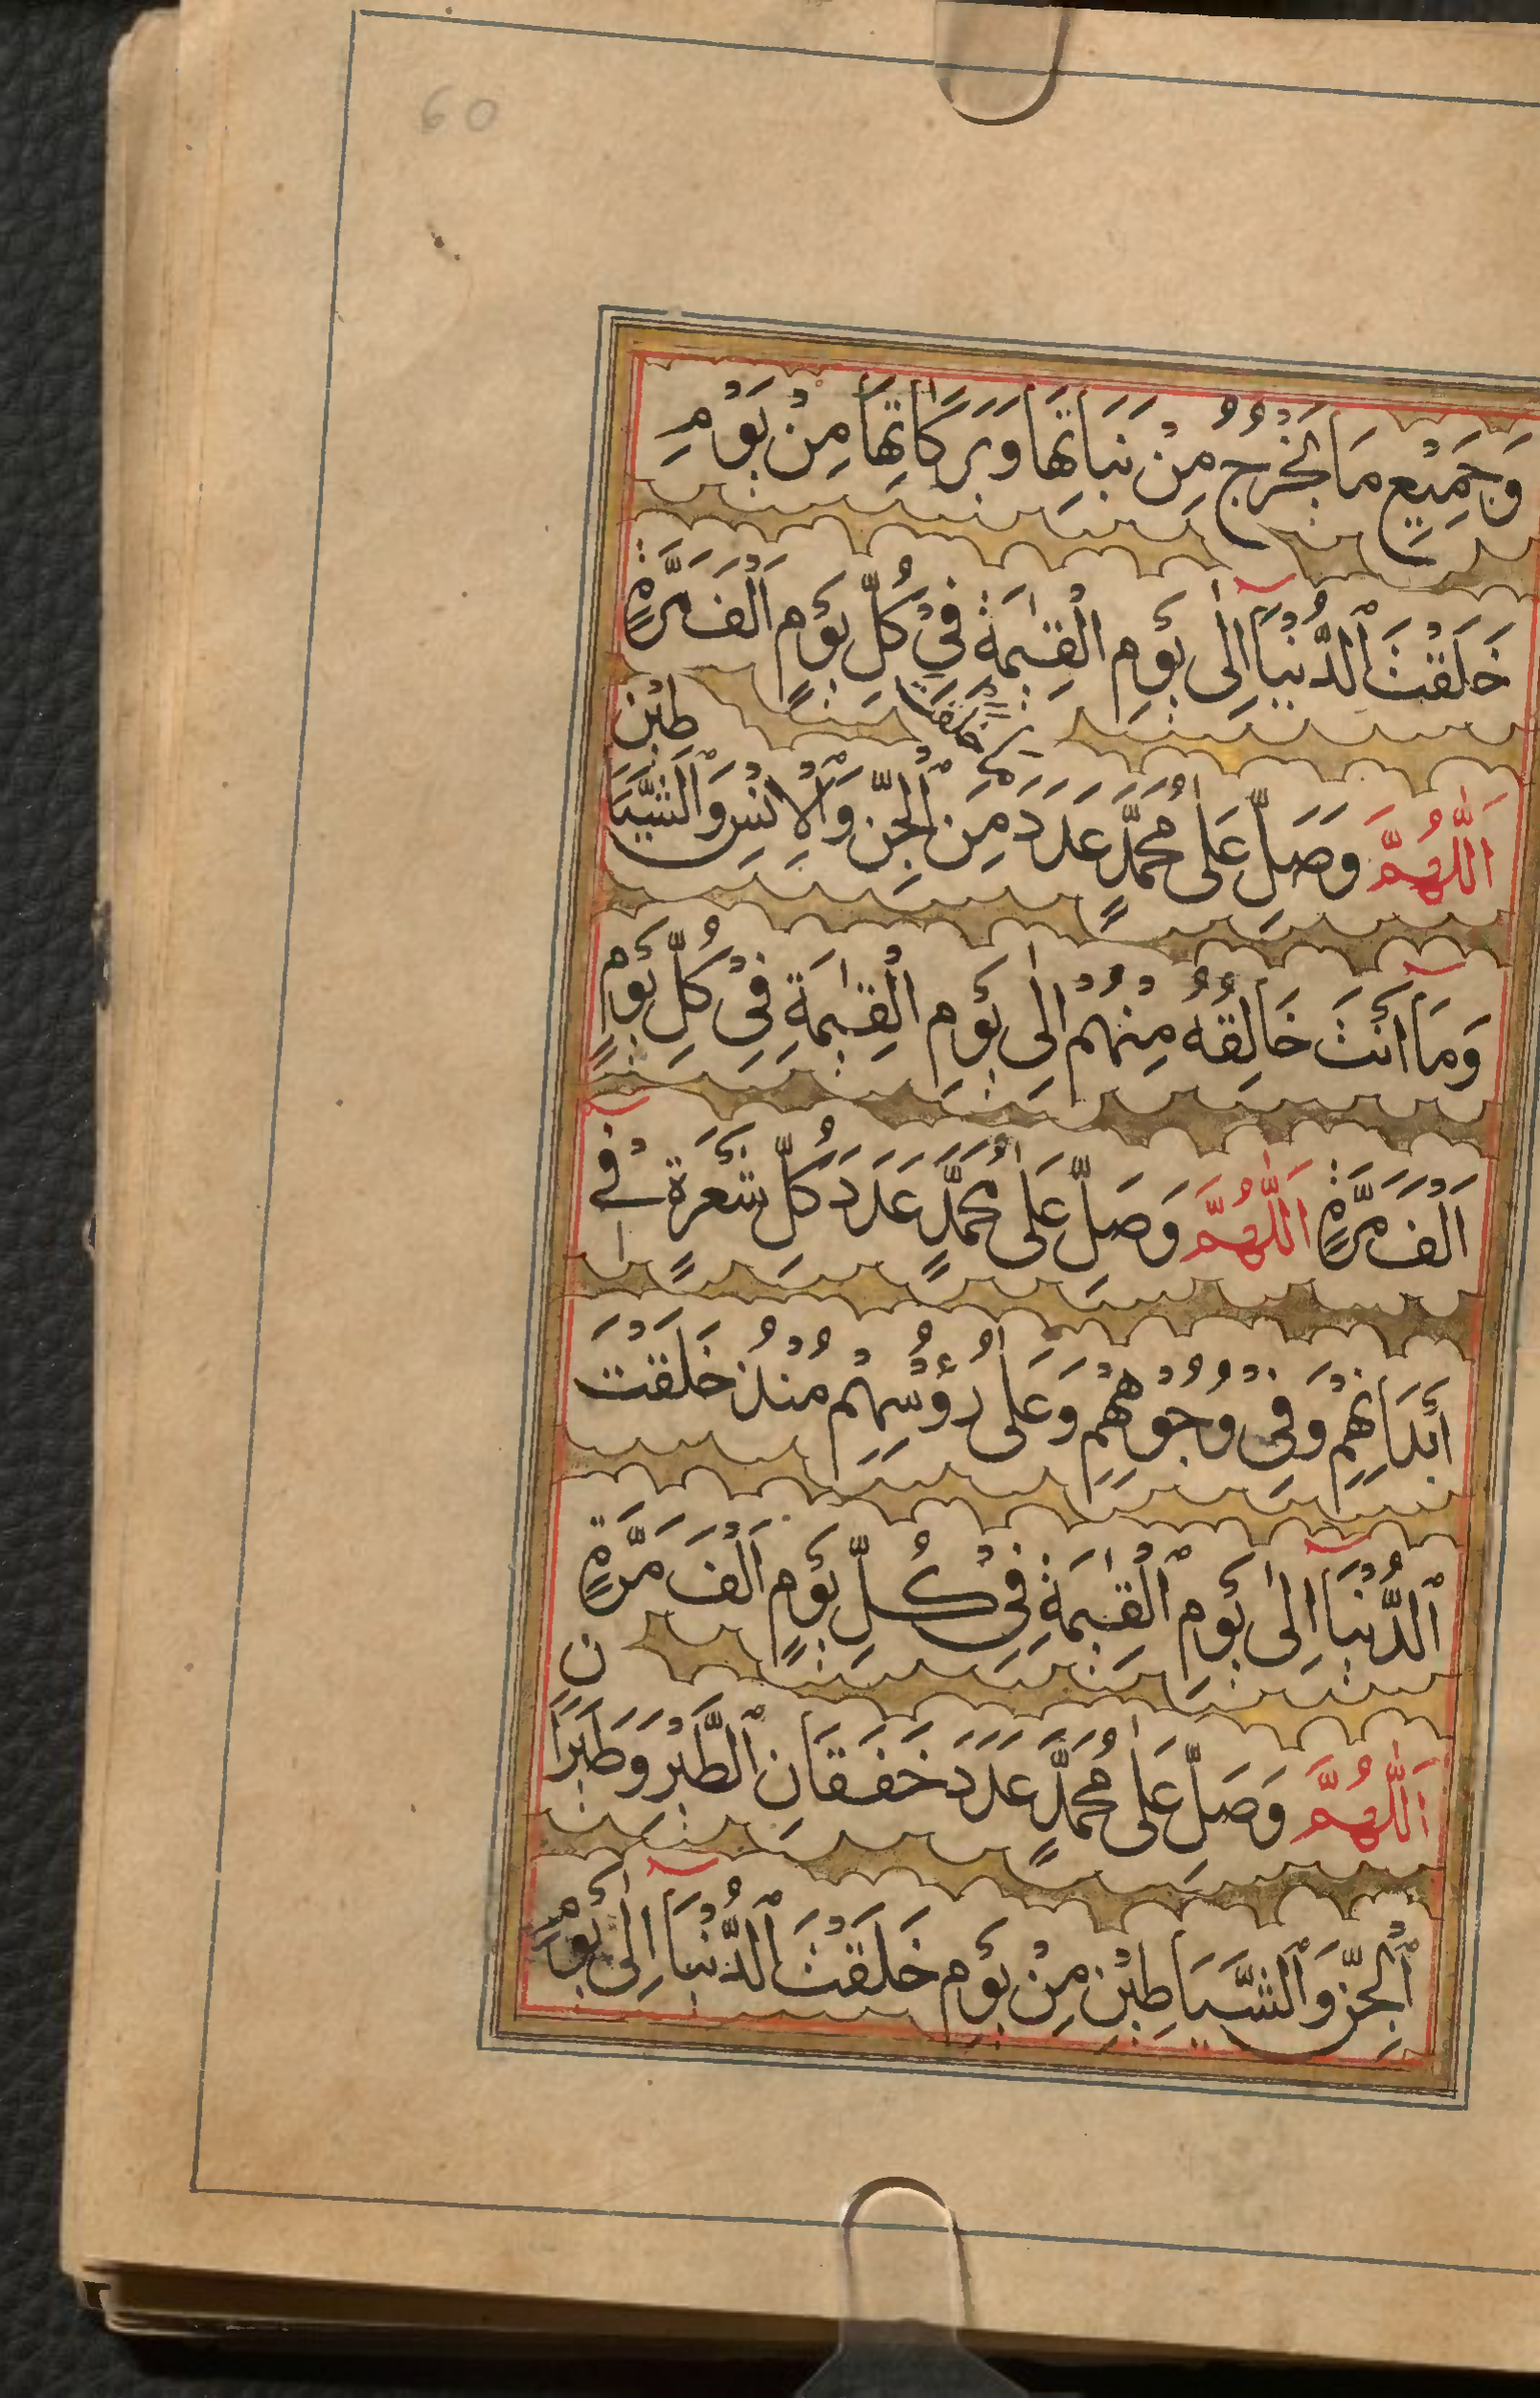 60
وَجَمِيْعِ مَا يَخْرُجُ مِنْ نَبَاتِهَا وَبَرَكَاتِهَا مِنْ يَوْمِ
خَلَقْتَ الدُّنْيَا اِلٰى يَوْمِ الْقِيٰمَةِ فِيْ كُلِّ يَوْمٍ اَلْفَ مَرَّةٍ
خَلَقْتَ
اَللّٰهُمَّ وَصَلِّ عَلٰى مُحَمَّدٍ عَدَدَ مِنَ الْجِنِّ وَالْاِنْسِ وَالشَّيَاطِيْنِ
وَمَا اَنْتَ خَالِقُهُ مِنْهُمْ اِلٰى يَوْمِ الْقِيٰمَةِ فِيْ كُلِّ يَوْمٍ
اَلْفَ مَرَّةٍ اَللّٰهُمَّ وَصَلِّ عَلٰى مُحَمَّدٍ عَدَدَ كُلِّ شَعْرَةٍ فِيْ
اَبْدَانِهِمْ وَفِيْ وُجُوْهِهِمْ وَعَلٰى رُؤُسِهِمْ مُنْذُ خَلَقْتَ
الدُّنْيَا اِلٰى يَوْمِ الْقِيٰمَةِ فِيْ كُلِّ يَوْمٍ اَلْفَ مَرَّةٍ
اَللّٰهُمَّ وَصَلِّ عَلٰى مُحَمَّدٍ عَدَدَ خَفَقَانِ الطَّيْرِ وَطَيَرَانِ
الْجِنِّ وَالشَّيَاطِيْنِ مِنْ يَوْمِ خَلَقْتَ الدُّنْيَا اِلٰى يَوْمِ